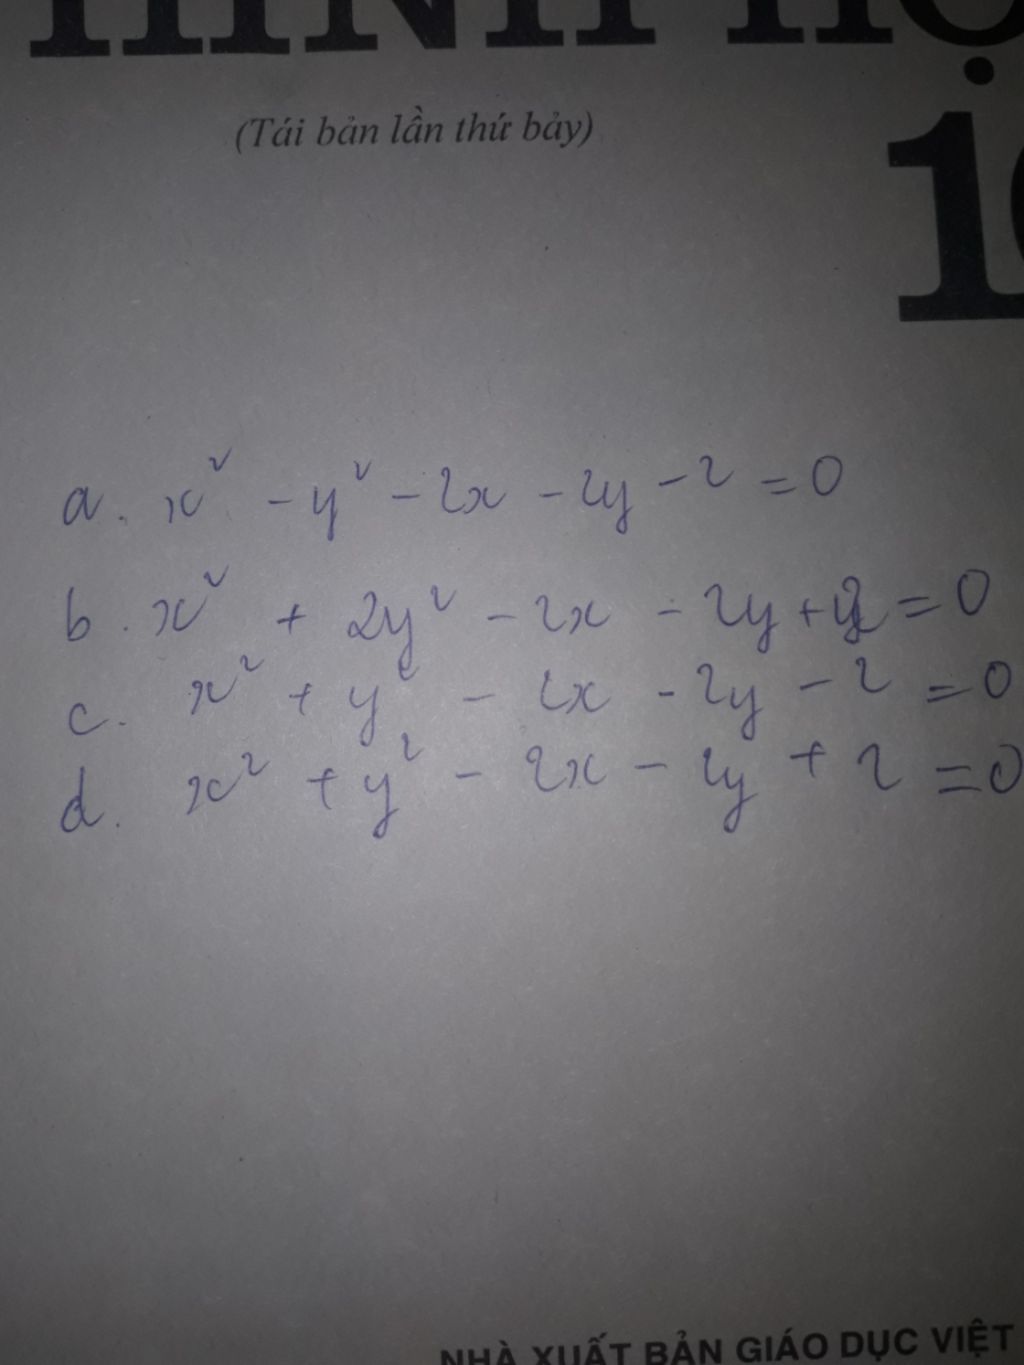 HÌNH HỌ
(Tái bản lần thứ bảy)
1
a. x² - y² - 2x - 2y - 2 = 0
b. x² + 2y² - 2x - 2y + 2 = 0
c. x² + y² - 2x - 2y - 2 = 0
d. x² + y² - 2x - 2y + 2 = 0
NHÀ XUẤT BẢN GIÁO DỤC VIỆT